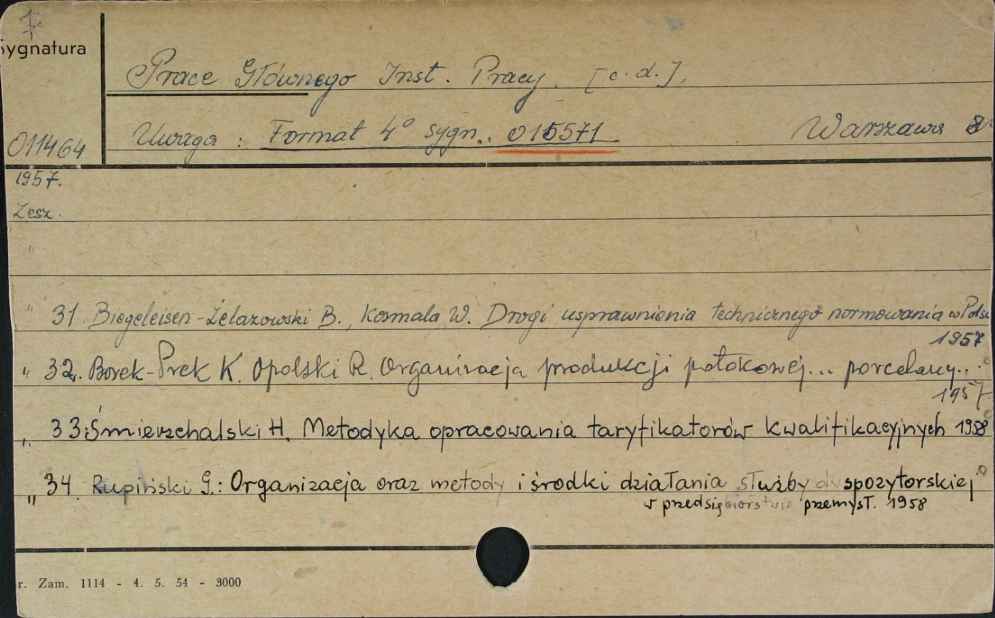 Sygnatura
Prace Głównego Inst. Pracy. [c.d.],
011464
Uwaga: Format 4° sygn. 015571 Warszawa 8°
1957.
Zesz.
"
" 31. Biegeleisen-Żelazowski B., Kosmala W. Drogi usprawnienia technicznego normowania w Polsce
1957
" 32. Borek-Prek K. Opolski R. Organizacja produkcji potokowej... porcelany...
1957
" 33. Śmierzchalski H. Metodyka opracowania taryfikatorów kwalifikacyjnych 1958
" 34. Rupiński G.: Organizacja oraz metody i środki działania służby dyspozytorskiej
w przedsiębiorstwie przemysł. 1958
r. Zam. 1114 - 4. 5. 54 - 3000